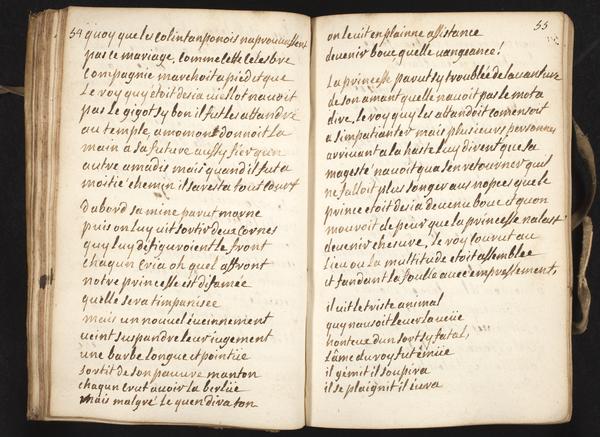 54
quoy que le colintanponois naprouuassent
pas ce mariage, comme cette celesbre
compagnie marchoit a pied et que
Le roy quy étoit desia uiellot nauoit
pas le gigot sy bon il fut les attandre
au temple, amomont donnoit La
main a sa future aussy fier qu'un
autre amadis mais quand il fut a
moitié chemin il saresta tout court
Dabord sa mine parut morne
puis on luy uit sortir deux cornes
quy luy défiguroient le front
chaqun cria oh quel affront
notre princesse est difamée
quelle sera timpanisée
mais un nouuel éueinnement
ueint suspandre leur iugement
une barbe longue et pointüe
sortit de son pauure manton
chaqun crut auoir la berlüe
mais malgré le quen dira ton
55
on le uit en plainne assistance
deuenir bouc, quelle uangeance!
La princesse parut sy troublée de lauanture
de son amant quelle nauoit pas le mot a
dire, le roy quy les attandoit comensoit
a simpatianter mais plusieurs personnes
arriuant a la haste luy dirent que sa
magesté nauoit qua sen retourner quil
ne falloit plus songer aus nopces que le
prince étoit desia deuenu bouc et quon
mouroit de peur que la princesse nalast
deuenir cheuure, le roy courut au
Lieu ou la multitude etoit assemblée
et fandant la foulle auec empressement,
il uit le triste animal
quy nausoit leuer la ueüe
honteux dun sort sy fatal,
Lame du roy fut émüe
il gémit il soupira
il se plaignit il